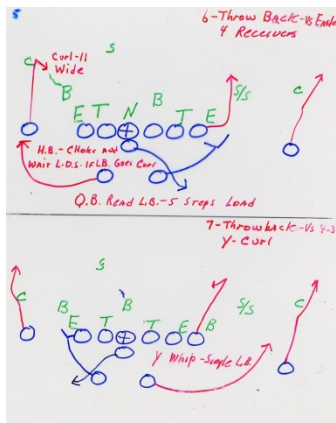 5
6-Throw Back-Vs Eagle
4 Receivers
S
C
Curl-11
Wide
B
B
S/S
C
E T N T E
H.B.- Choke and
Wait L.D.S. If L.B. Goes Curl
Q.B. Read L.B.-5 Steps Load
7-Throwback-Vs 4-3
Y-Curl
S
C
B
B
S/S
C
E T T E B
Y Whip-Single L.B.